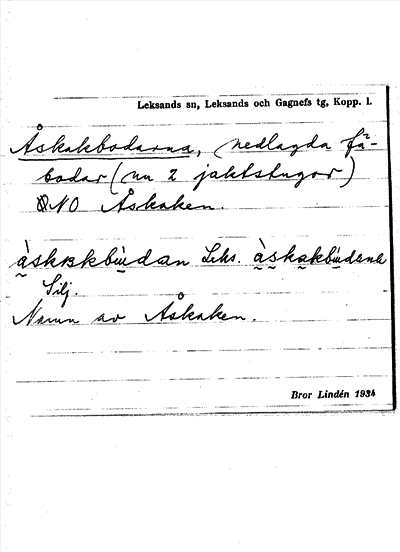 Leksands sn, Leksands och Gagnefs tg, Kopp. l.
Åskakbodarna, nedlagda fä-
bodar (nu 2 jaktstugor)
ONO Åskaken.
Leks.
Silj.
Namn av Åskaken.
Bror Lindén 1934